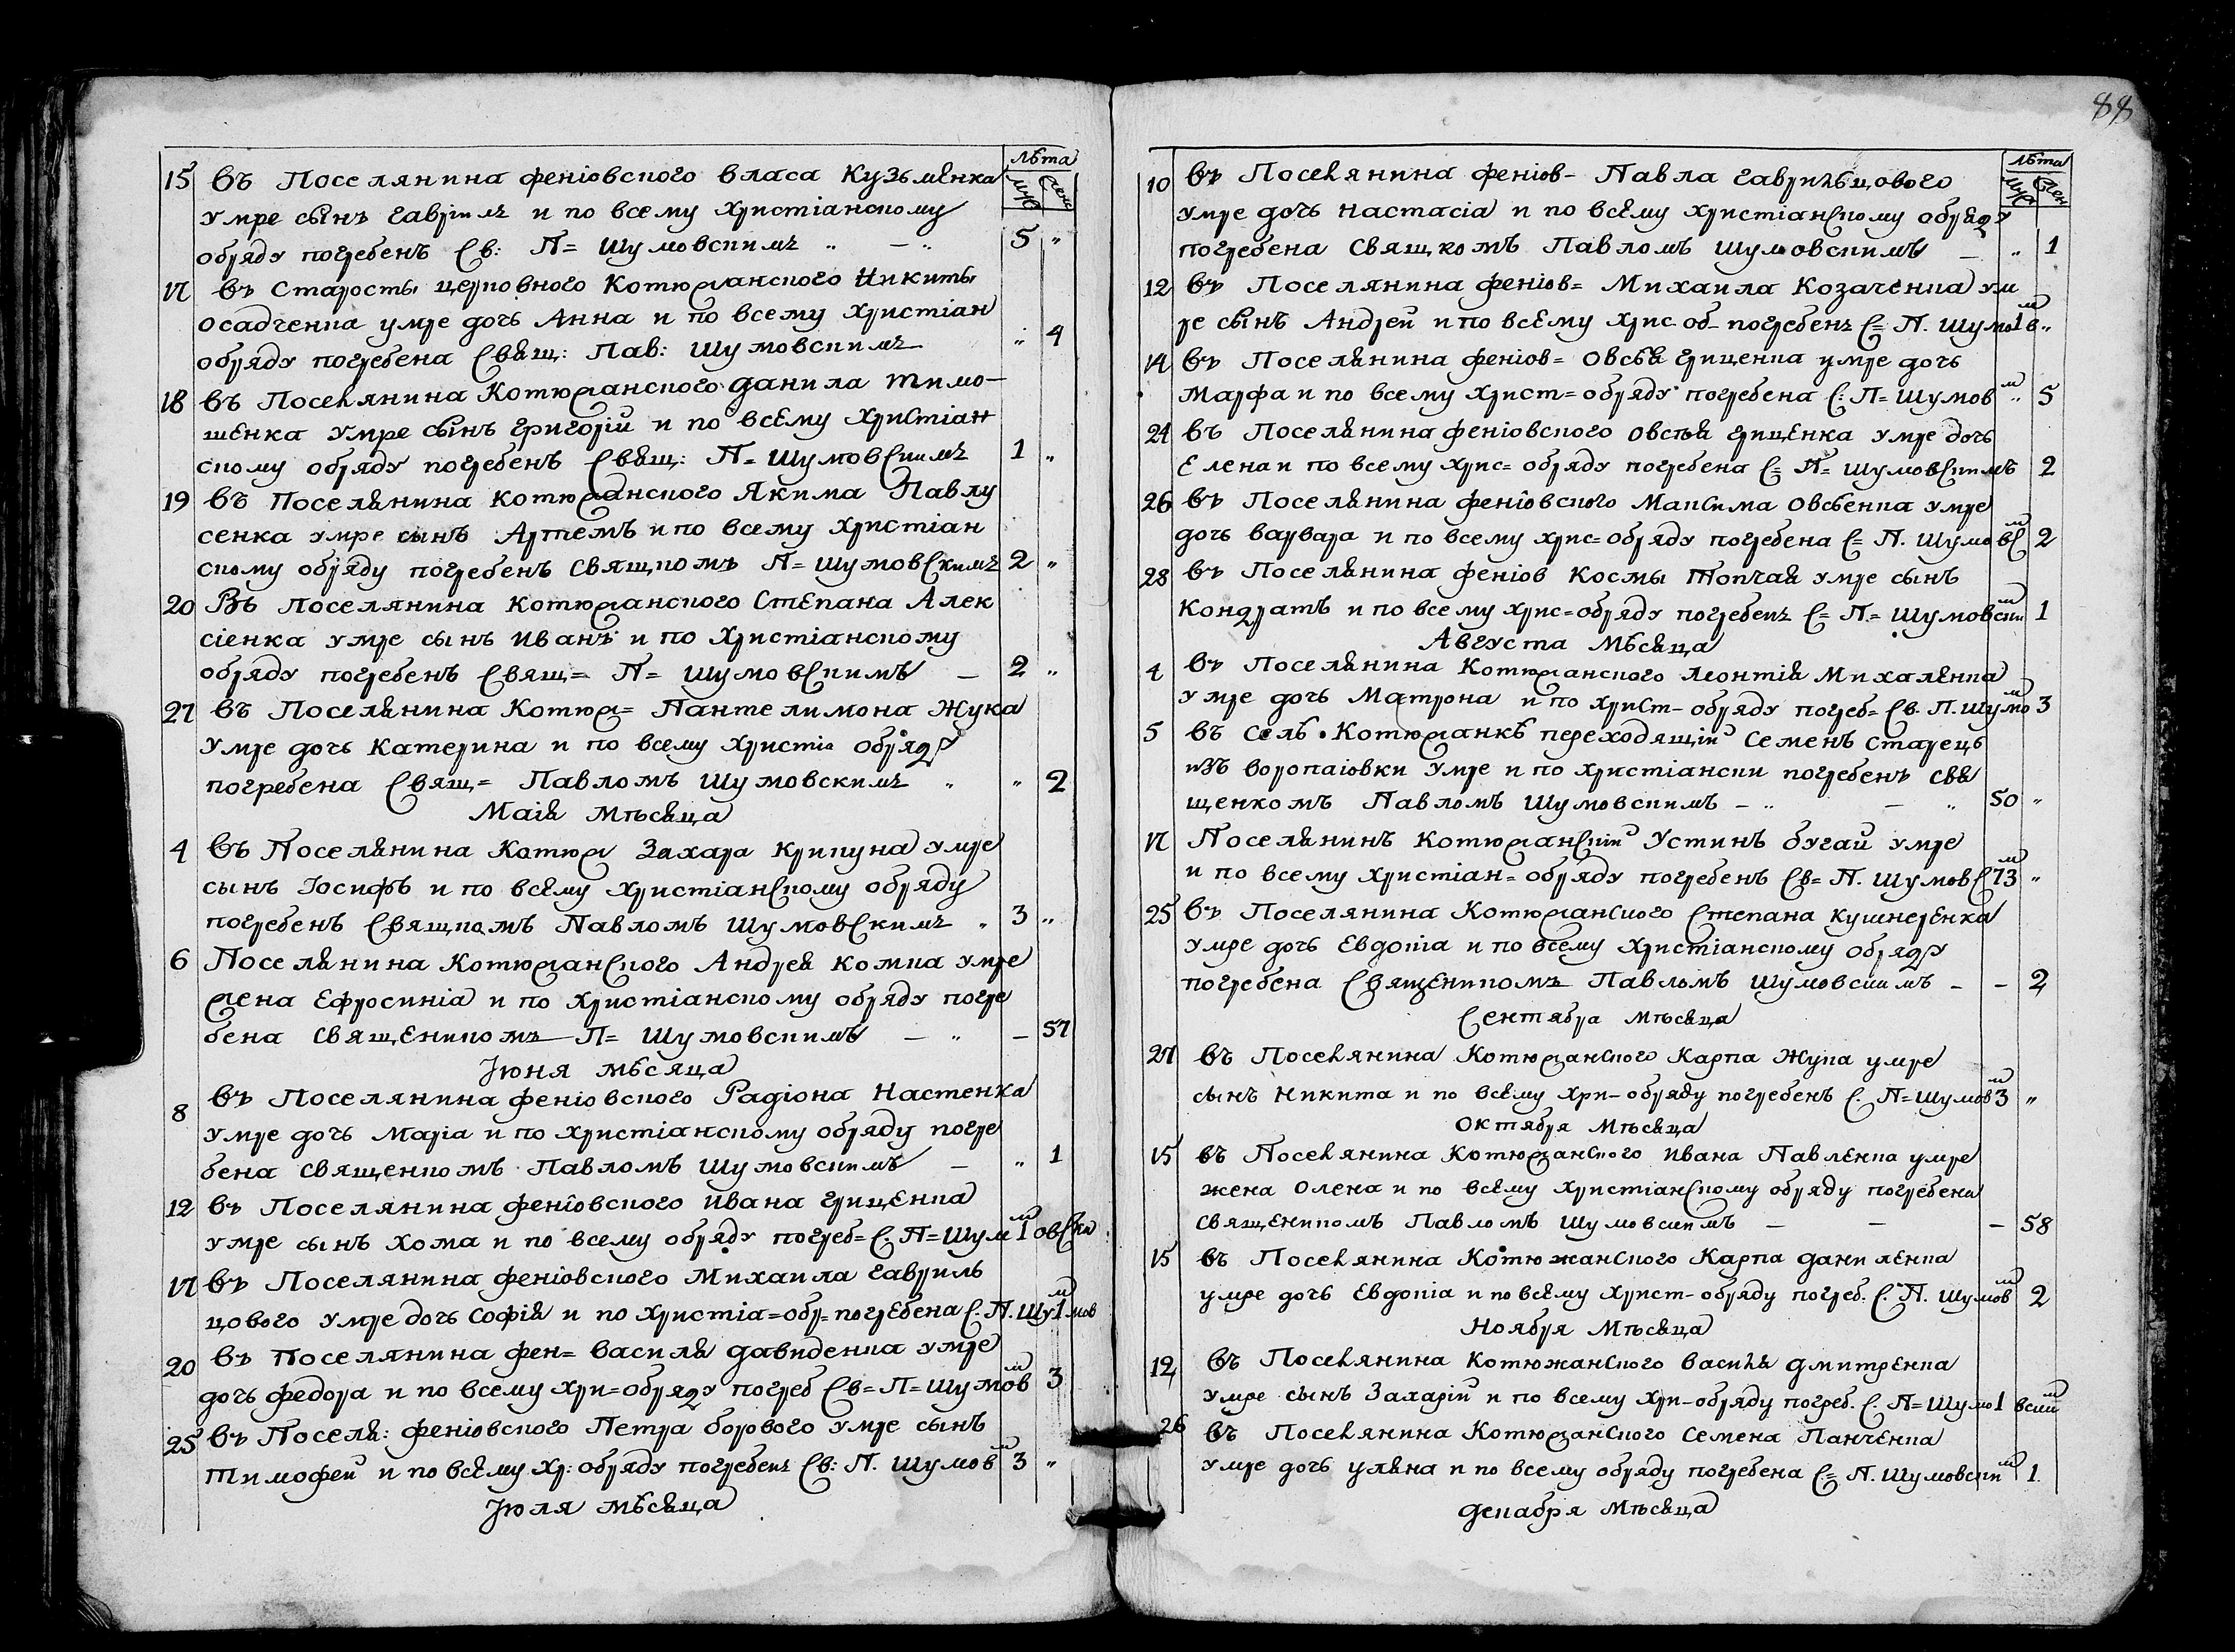 88
лѣта
муж жен
15 Въ Поселянина феніовского власа Кузьмѣнка
умре сынъ Гавріилъ и по всему христіанскому
обряду погребенъ Св: П= Шумовскимъ „ — „ 5 „
17 Въ Старосты церковного Котюжанского Никиты
Осадченка умре дочь Анна и по всему христіан
обряду погребена Свящ: Пав: Шумовскимъ „ 4
18 Въ Поселянина Котюжанского данила тимо-
шенка умре сынъ григорій и по всему христіан
скому обряду погребенъ Свящ: П= Шумовскимъ 1 „
19 Въ Поселянина котюжанского Якима Павлу
сенка умре сынъ Артемъ и по всему христіан
скому обряду погребенъ свящкомъ П= шумовскимъ 2 „
20 Въ поселянина котюжанского Степана Алек
сіенка умре сынъ иванъ и по христіанскому
обряду погребенъ Свящ= П= Шумовскимъ — 2 „
27 Въ Поселянина Котюж= Пантелимона Жука
умре дочь Катерина и по всему христіа обряду
погребена Свящ= Павломъ Шумовскимъ „ „ 2
Маія мѣсяца
4 Въ Поселянина Котюж Захара Крикуна умре
сынъ Іосифъ и по всему христіанскому обряду
погребенъ Свящкомъ Павломъ Шумовскимъ „ 3 „
6 Поселянина Котюжанского Андрея комка умре
жена Ефросинія и по христіанскому обряду погре
бена священикомъ П= Шумовскимъ — „ — 57
Іюня мѣсяца
8 Въ Поселянина феніовского Радіона Настенка
умре дочь Маріа и по христіанскому обряду погре
бена священкомъ Павломъ Шумовскимъ — „ 1
12 Въ Поселянина феніовского ивана грищенка
умре сынъ хома и по всему обряду погреб= С. П= Шумм 1 овски
17 Въ Поселянина феніовского Михаила гавриль
цового умре дочь софія и по христіа= обр= погребена С. П. Шум 1 мов
20 Въ Поселянина фен= василя давиденка умре
дочь федора и по всему хри= обряду погреб Св= П= Шумовм 3
25 Въ Поселя: феніовского Петра борового умре сынъ
тимофей и по всему хр: обряду погребенъ Св: П. Шумовм 3 „
Іюля мѣсяца
лѣта
муж жен
10 Въ Поселянина феніов- Павла гаврильцового
умре дочь настасіа и по всему христіанскому обряду
погребена Свящкомъ Павломъ Шумовскимъ — „ 1
12 Въ Поселянина феніов= Михаила Козаченка ум
ре сынъ Андрей и по всему хрис- об- погребенъ С= П. Шумо 1м в „
14 Въ Поселянина феніов= Овсѣя грищенка умре дочь
марфа и по всему христ= обряду погребена С: П= Шумовм „ 5
24 Въ Поселянина феніовского овсѣя грищенка умре дочь
Елена и по всему хрис= обряду погребена С= П= шумовскимъ 2
26 Въ Поселянина феніовского Максима Овсѣенка умре
дочь варвара и по всему хрис= обряду погребена С= П. Шумовсм 2
28 Въ Поселянина феніов Космы Топчая умре сынъ
Кондратъ и по всему хрис= обряду погребенъ С= П.= Шумовским 1
Августа мѣсяца
4 Въ Поселянина Котюжанского Леонтія Михаленка
умре дочь Матрона и по христ- обряду погреб= Св. П. Шумом 3
5 Въ Селѣ Котюжанкѣ переходящій Семенъ старецъ
изъ воропаіовки умре и по христіански погребенъ свя
щенкомъ Павломъ Шумовскимъ — „ — „ 50 „
17 Поселянинъ котюжанскій Устинъ бугай умре
и по всему христіан= обряду погребенъ Св= П. Шумовсм 73 „
25 Въ Поселянина Котюжанского Степана кушнеренка
умре дочь Евдокіа и по всему христіанскому обряду
погребена Священикомъ Павломъ Шумовскимъ — — 2
Сентября мѣсяца
27 Въ Поселянина Котюжанского Карпа жука умре
сынъ никита и по всему хри- обряду погребенъ С. П= Шумовм 3 „
октября мѣсяца
15 Въ Поселянина Котюжанского ивана Павленка умре
жена Олена и по всему христіанскому обряду погребена
священикомъ Павломъ Шумовскимъ — — — 58
15 Въ Поселянина Котюжанского Карпа даниленка
умре дочь Евдокіа и по всему христ- обряду погреб. С. П. Шумовм 2
Ноября мѣсяца
12 Въ Поселянина котюжанского василя дмитренка
умре сынъ Захарій и по всему хри- обряду погреб. С. П= Шумо 1 вским
26 Въ Поселянина Котюжанского семена Панченка
умре дочь уляна и по всему обряду погребена С= П. Шумовским 1.
декабря мѣсяца